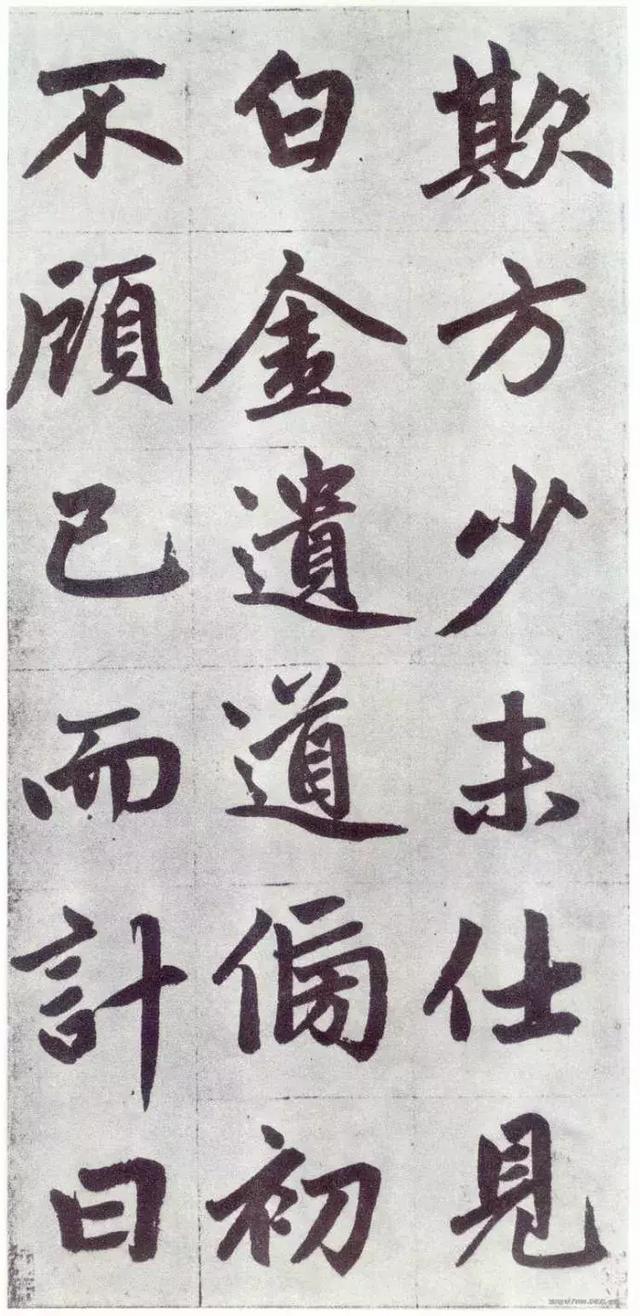 欺方少未仕見
白金遺道傍初
不顧己而計日